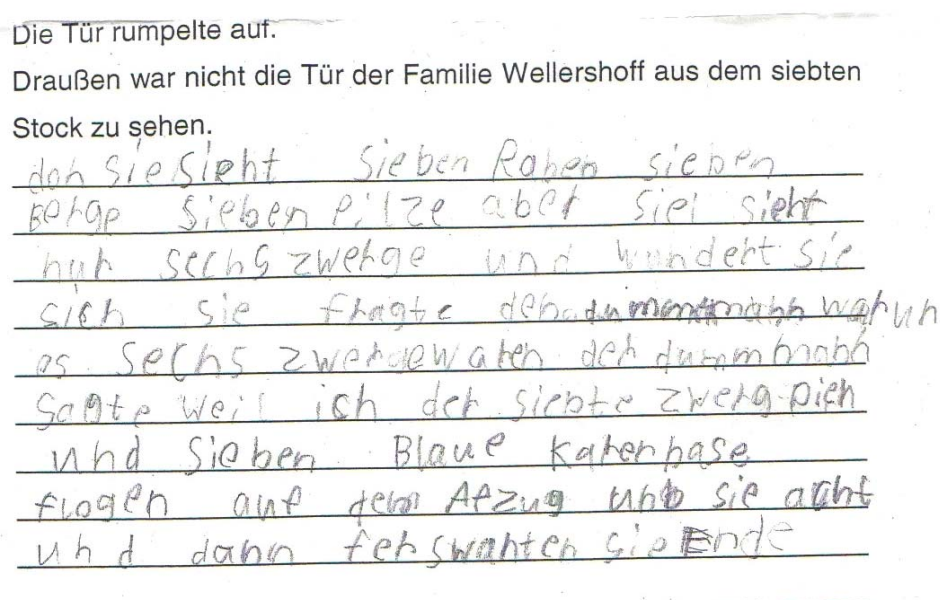 Die Tür rumpelte auf.
Draußen war nicht die Tür der Familie Wellershoff aus dem siebten
Stock zu sehen.
don sie sieht sieben Raben sieben
Berge sieben Pilze aber siei sieht
nur sechs zwerge und wundert sie
sich sie fragte den dummmann warun
es sechs zwerge waren der dummmann
sagte weil ich der siebte zwerg bien
und sieben Blaue
flogen auf dem Afzug und sie acht
und dann ferswanten sie Ende